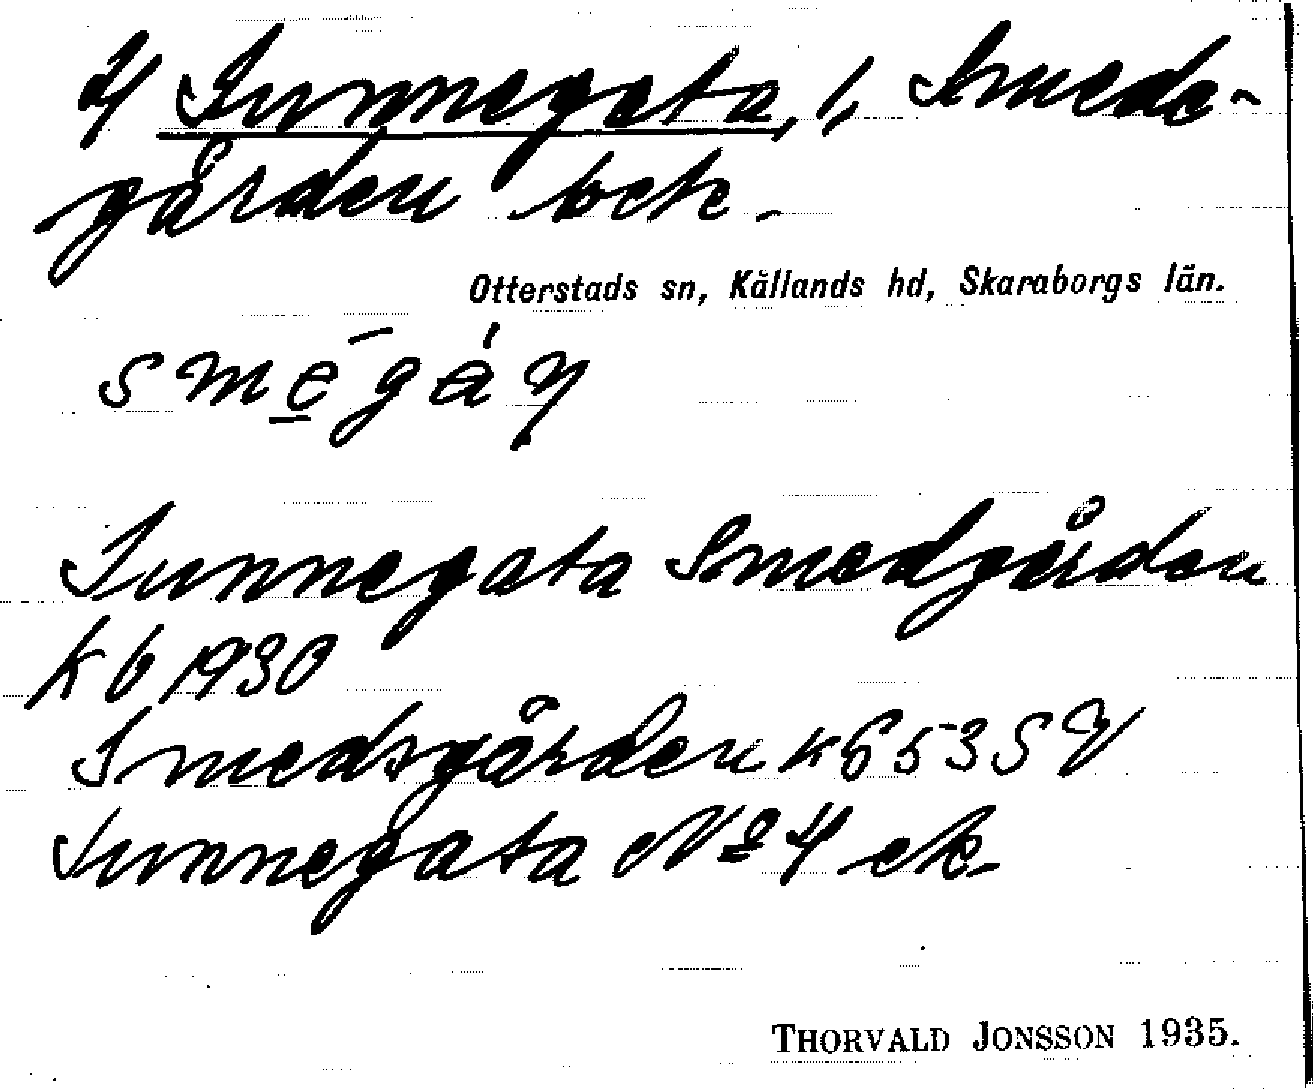 4 Sunnegata, 1, Smeds-
gården torp.
Otterstads sn, Kållands hd, Skaraborgs län.
smēgán
Sunnegata Smedgården
Kb 1930
Smedsgården
Sunnegata No 4 ek
THORVALD JONSSON 1935.